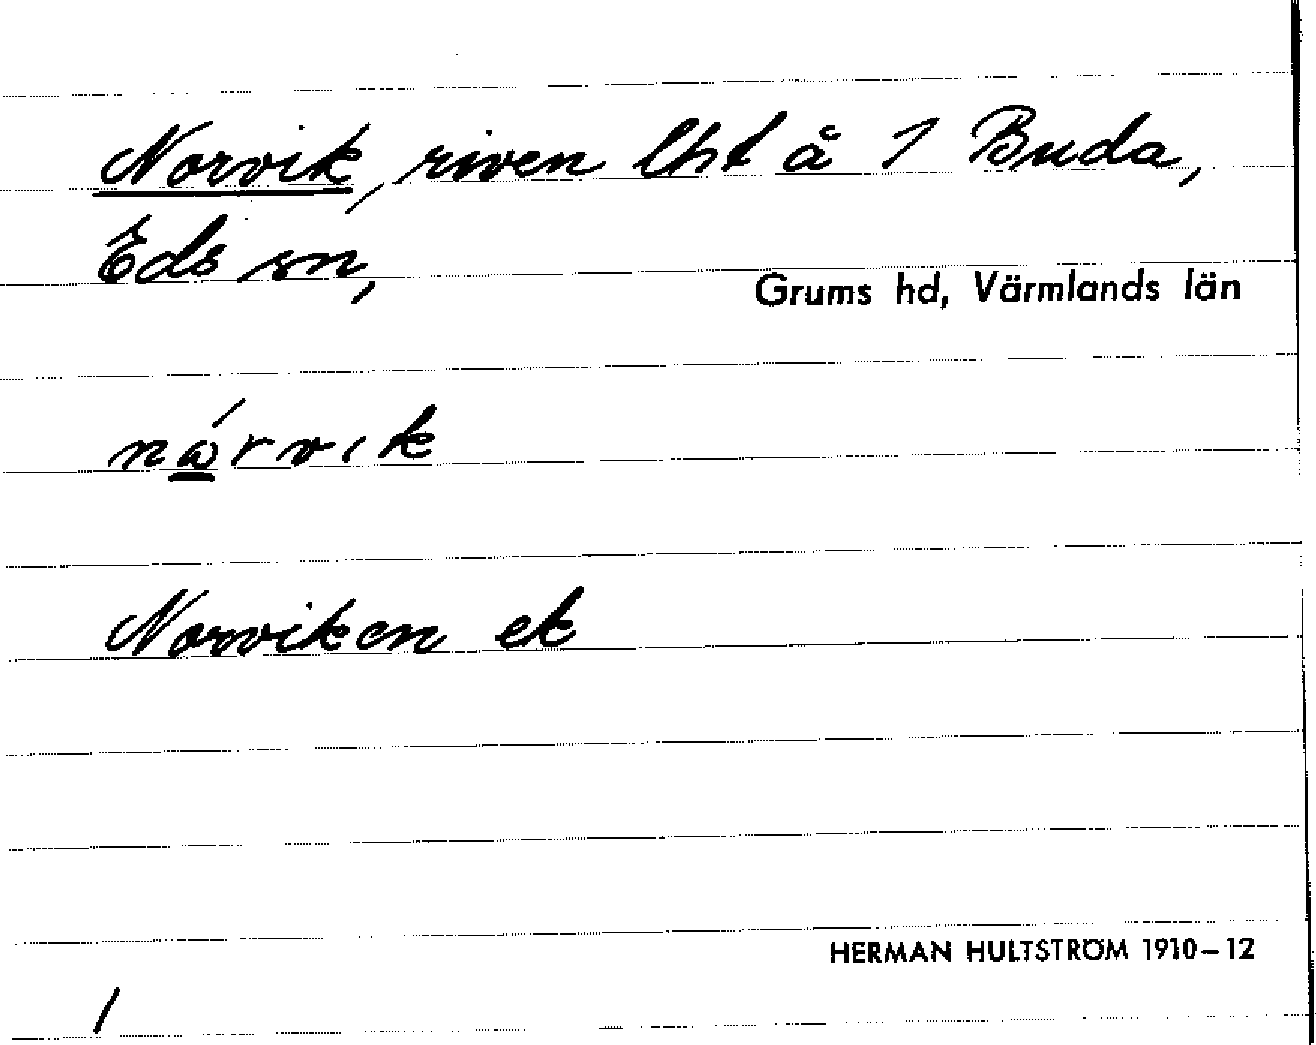 Norvik, riven lht å 1 Buda,
Eds sn,
Grums hd, Värmlands län
nårvik
Norviken ek
HERMAN HULTSTRÖM 1910–12
/